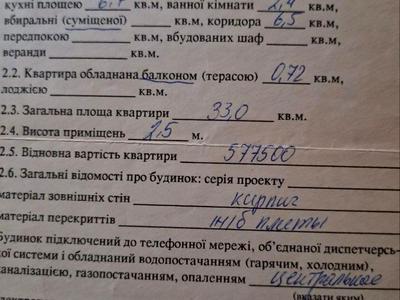 кухні площею 6,7 кв.м, ванної кімнати 2,4 кв.м,
вбиральні (суміщеної) кв.м, коридора 6,5 кв.м,
передпокою кв.м, вбудованих шаф кв.м,
веранди кв.м.
2.2. Квартира обладнана балконом (терасою) 0,72 кв.м,
лоджією кв.м.
2.3. Загальна площа квартири 33,0 кв.м.
2.4. Висота приміщень 2,5 м.
2.5. Відновна вартість квартири 577500
2.6. Загальні відомості про будинок: серія проекту
матеріал зовнішніх стін кирпич
матеріал перекриттів ж/б плиты
Будинок підключений до телефонної мережі, об'єднаної диспетчерсь-
кої системи і обладнаний водопостачанням (гарячим, холодним),
каналізацією, газопостачанням, опаленням центральное
(вказати яким)